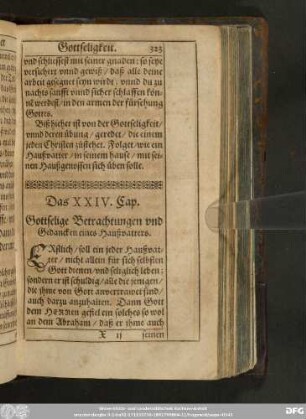 Gottseligkeit. 323
vnd schliessest mit seiner gnaden: so seye
versichert vnnd gewiß / daß alle deine
arbeit gesegnet seyn wirdt / vnnd du zu
nachts sanfft vnnd sicher schlaffen kön-
nē werdest / in den armen der fürsehung
Gottes.
Bißhieher ist von der Gottseligkeit /
vnnd deren übung / geredet / die einem
jeden Christen zustehet. Folget / wie ein
Haußvatter / in seinem hauß / mit sei-
nen Haußgenossen sich üben solle.
Das XXIV. Cap.
Gottselige Betrachtungen vnd
Gedancken eines Haußvatters.
ERstlich / soll ein jeder Haußvat-
ter / nicht allein für sich selbsten
Gott dienen / vnd seliglich leben:
sondern er ist schuldig / alle die jenigen /
die ihme von Gott anvertrawet sind /
auch darzu anzuhalten. Dann Gott
dem HERREN gefiel ein solches so wol
an dem Abraham / daß er ihme auch
X ij seinen